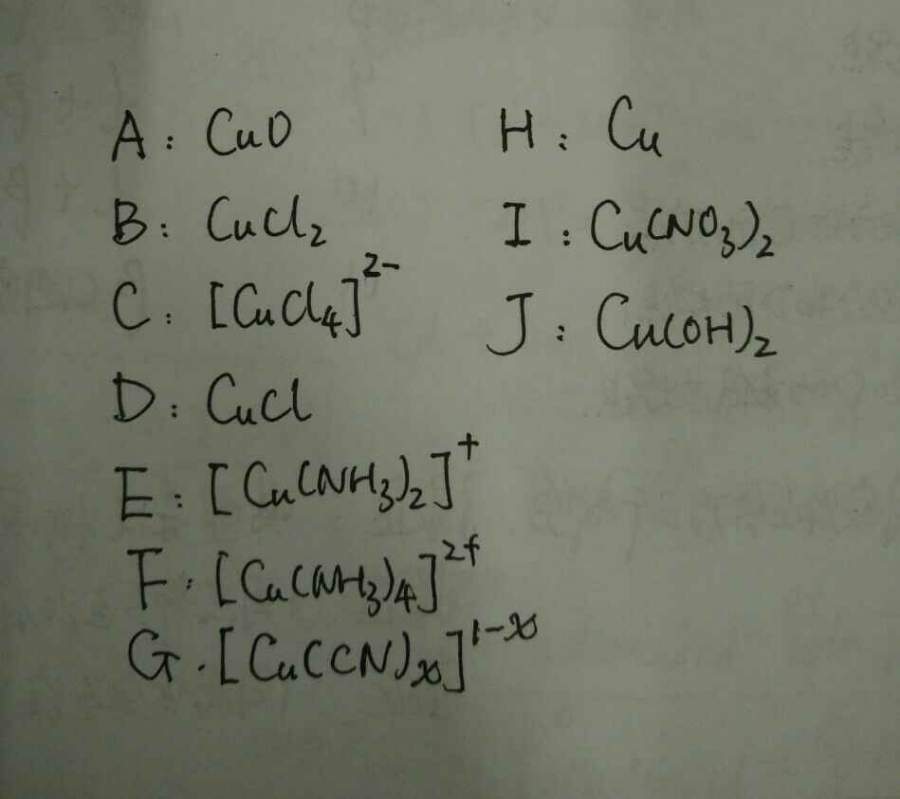 A: CuO
B: CuCl₂
C: [CuCl₄]²⁻
D: CuCl
E: [Cu(NH₃)₂]⁺
F: [Cu(NH₃)₄]²⁺
G. [Cu(CN)ₓ]¹⁻ˣ
H: Cu
I: Cu(NO₃)₂
J: Cu(OH)₂